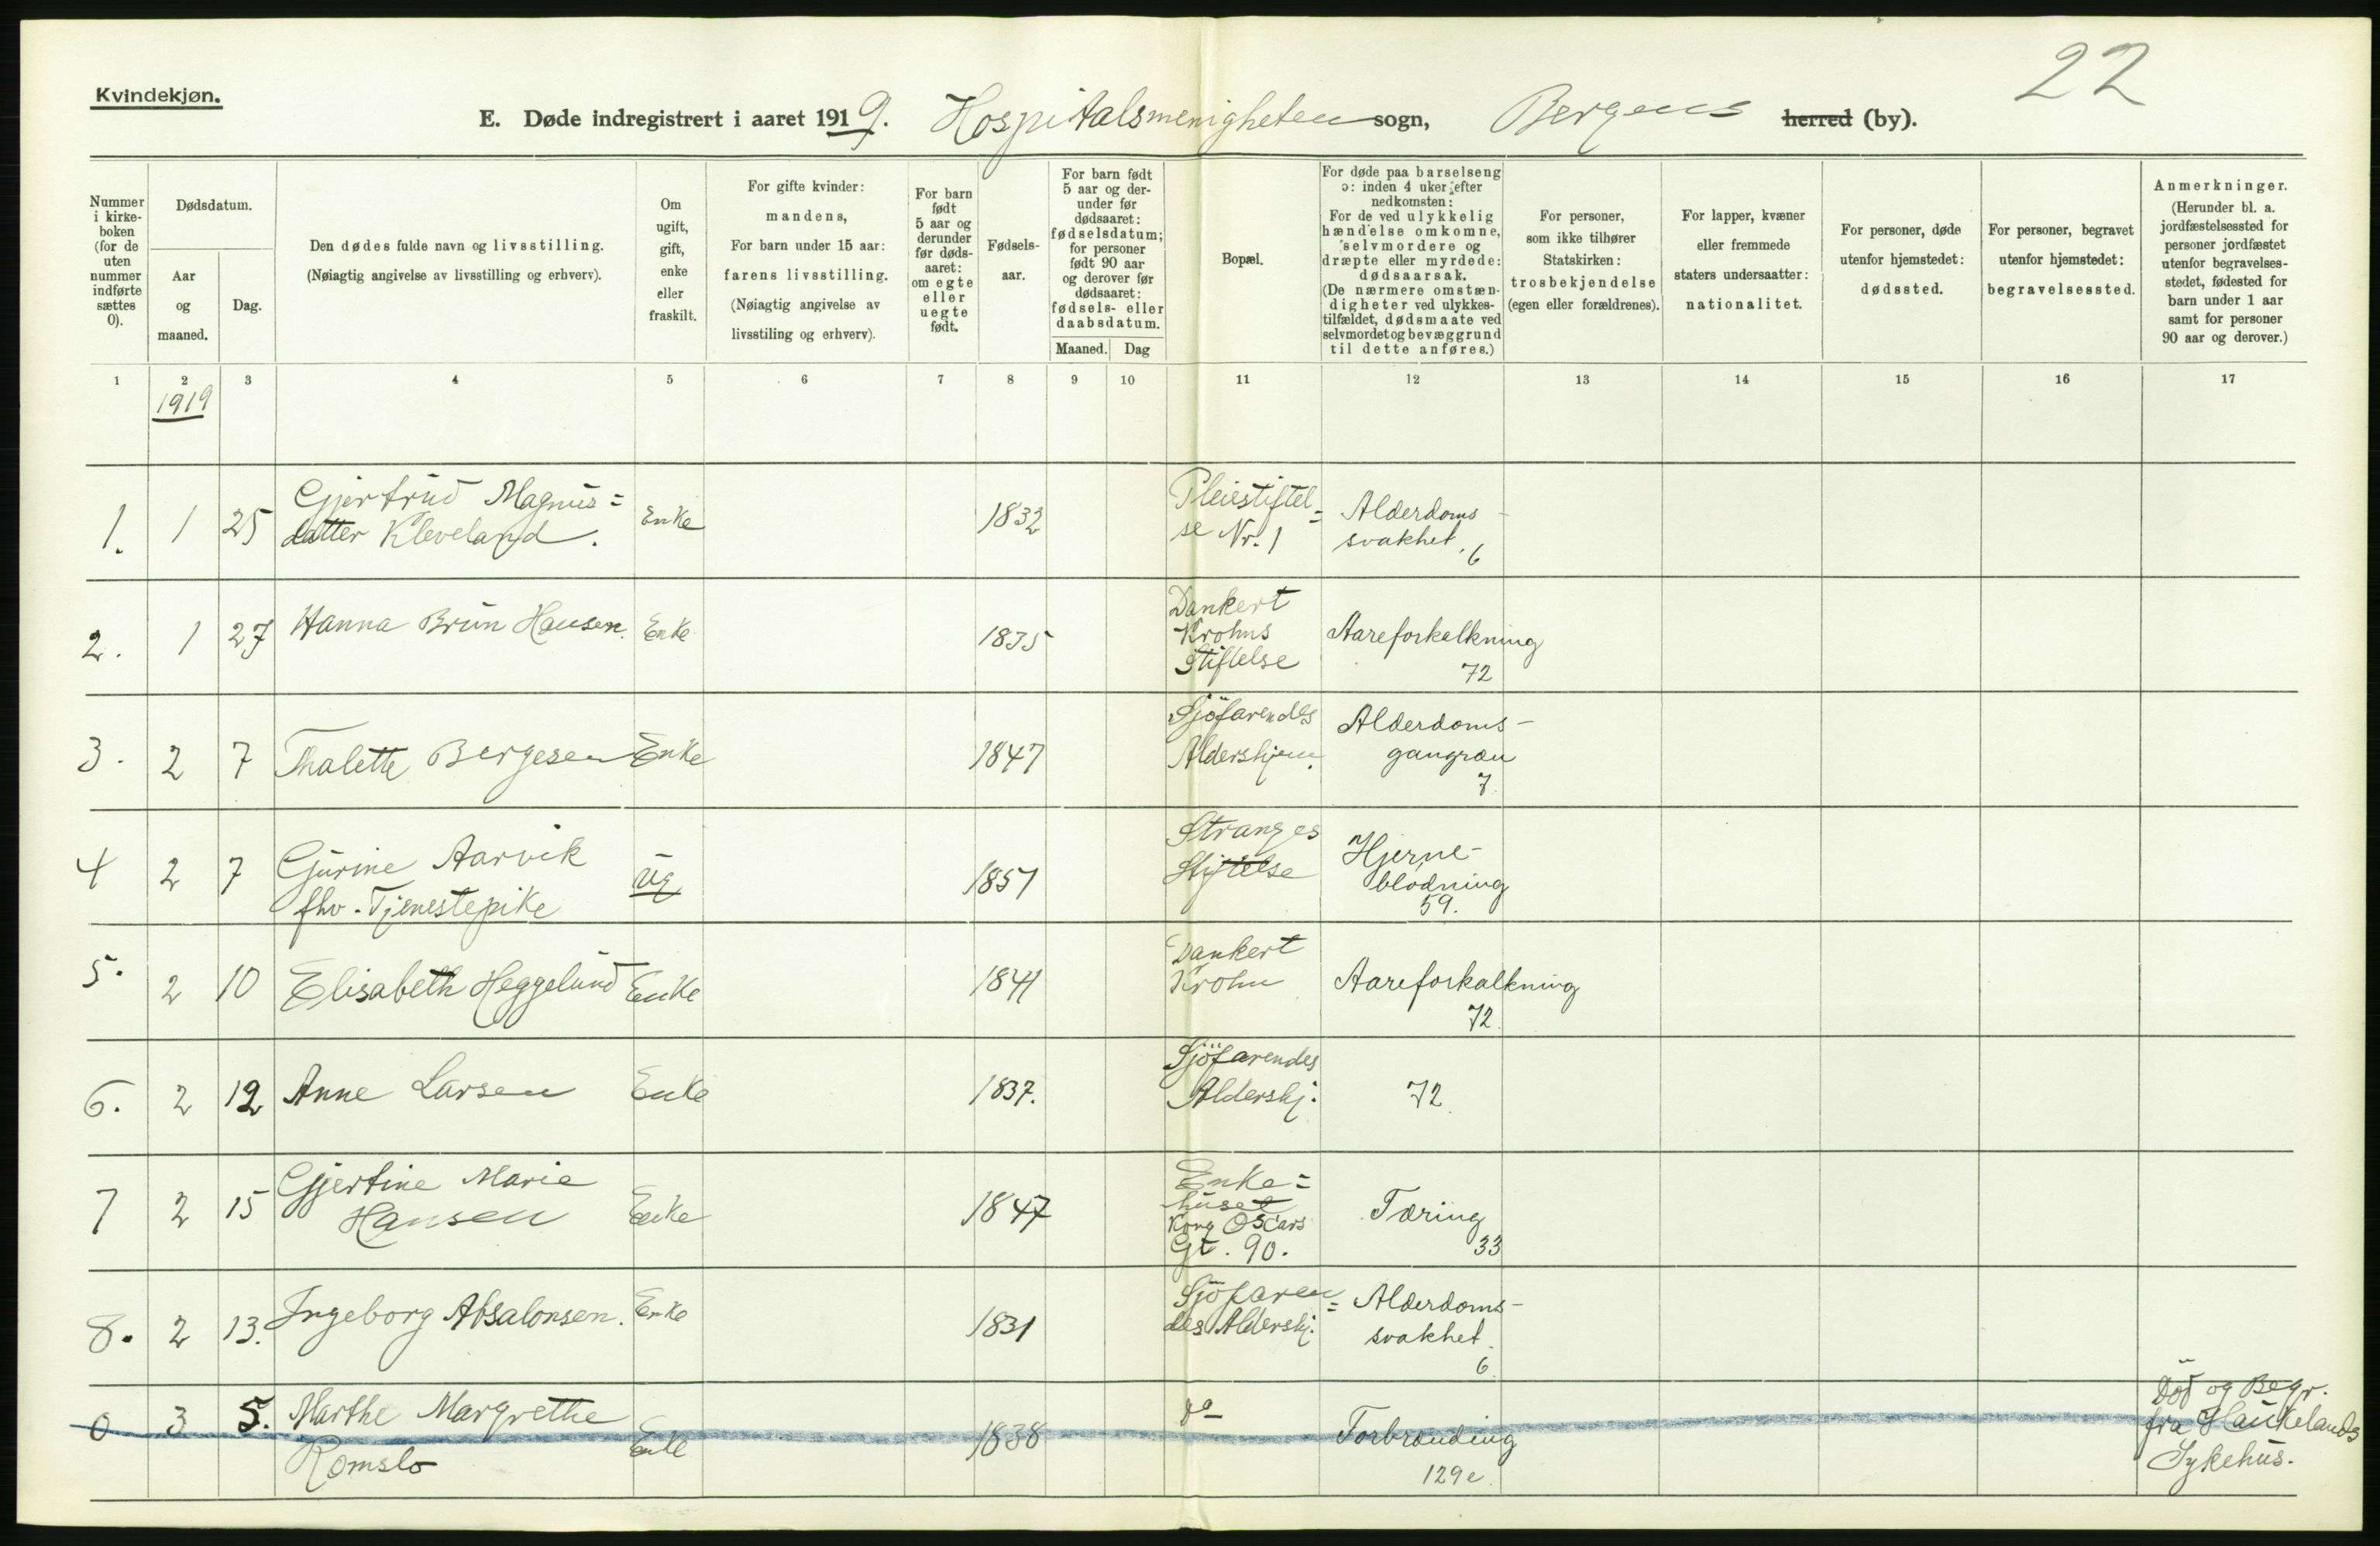 22
Kvindekjøn.
E. Døde indregistrert i aaret 1919. Hospitalsmenigheten sogn, Bergens herred (by).
Nummer
i kirke-
boken
(for de
uten
nummer
indførte
sættes
0).
Dødsdatum.
Aar
og
maaned.
Dag.
Den dødes fulde navn og livsstilling.
(Nøiagtig angivelse av livsstilling og erhverv).
Om
ugift,
gift,
enke
eller
fraskilt.
For gifte kvinder:
mandens,
For barn under 15 aar:
farens livsstilling.
(Nøiagtig angivelse av
livsstiling og erhverv).
For barn
født
5 aar og
derunder
før døds-
aaret:
om egte
eller
uegte
født.
Fødsels-
aar.
For barn født
5 aar og der-
under før
dødsaaret:
fødselsdatum;
for personer
født 90 aar
og derover før
dødsaaret:
fødsels- eller
daabsdatum.
Maaned. Dag
Bopæl.
For døde paa barselseng
ɔ: inden 4 uker efter
nedkomsten:
For de ved ulykkelig
hændelse omkomne,
selvmordere og
dræpte eller myrdede:
dødsaarsak.
(De nærmere omstæn-
digheter ved ulykkes-
tilfældet, dødsmaate ved
selvmordet og bevæggrund
til dette anføres.)
For personer,
som ikke tilhører
Statskirken:
trosbekjendelse
(egen eller forældrenes).
For lapper, kvæner
eller fremmede
staters undersaatter:
nationalitet.
For personer, døde
utenfor hjemstedet:
dødssted.
For personer, begravet
utenfor hjemstedet:
begravelsessted.
Anmerkninger.
(Herunder bl. a.
jordfæstelsessted for
personer jordfæstet
utenfor begravelses-
stedet, fødested for
barn under 1 aar
samt for personer
90 aar og derover.)
1 2 3 4 5 6 7 8 9 10 11 12 13 14 15 16 17
1919
1. 1 25 Gjertrud Magnus=
datter Kleveland. Enke 1832 Pleiestiftel=
se Nr. 1 Alderdoms-
svakhet. 6
2. 1 27 Hanna Brun Hansen. Enke 1835 Dankert
Krohns
Stiftelse Aareforkalkning
72
3. 2 7 Thalette Bergesen Enke 1847 Sjöfarendes
Aldershjem. Alderdoms-
gangræn
7.
4 2 7 Gurine Aarvik
fhv. Tjenestepike Ug 1851 Stranges
Stiftelse Hjerne-
blødning
59.
5. 2 10 Elisabeth Heggelund Enke 1841 Dankert
Krohn Aareforkalkning
72.
6. 2 12 Anne Larsen Enke 1837. Sjöfarendes
Aldershj. 72.
7 2 15 Gjertine Marie
Hansen Enke 1847 Enke=
huset
Kong Oscars
Gt. 90. Tæring
33
8. 2 13. Ingeborg Absalonsen. Enke 1831 Sjöfaren=
des Aldershj. Alderdoms-
svakhet.
6
0 3 5. Marthe Margrethe
Romslo Enke 1838 do Forbrænding
129e. Död og Begr.
fra Haukelands
Sykehus.